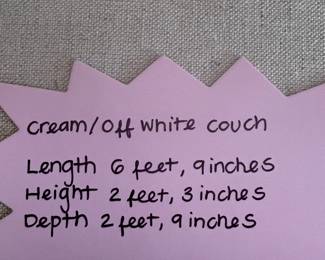 cream/off white couch
Length 6 feet, 9 inches
Height 2 feet, 3 inches
Depth 2 feet, 9 inches